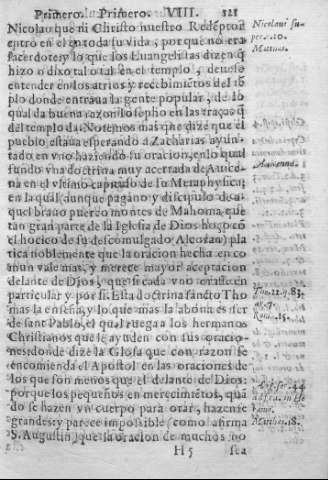 Primero. Primero. VIII. 321
Nicolao que ni Christo nuestro Redẽptor
entrò en el en toda su vida, porque no era
sacerdote y lo que los Euangelistas dizen q̃
hizo o dixo tal o tal en el templo, deuese
entender en los atrios y recebimiẽtos del tẽ
plo donde entraua la gente popular, de lo
qual da buena razon Iosepho en las traças
del templo. Notemos mas que dize que el
pueblo estaua esperando a Zacharias ayun
tado en vno haziendo su oracion, en lo qual
fundo vna doctrina muy acertada de Auice
na en el vltimo capitulo de su Metaphysica;
en la qual (aunque pagano y discipulo de a
quel brauo puerco montes de Mahoma que
tan gran parte de la Iglesia de Dios hoçò cõ
el hocico de su descomulgado Alcoran) pla
tica noblemente que la oracion hecha en co
mun vale mas, y merece mayor aceptacion
delante de Dios, que si cada vno orasse en
particular y por si. Esta doctrina sancto Tho
mas la enseña, y lo que mas la abona es ser
de sant Pablo, el qual ruega a los hermanos
Christianos que le ayuden con sus oracio
nes: donde dize la Glosa que con razon se
encomienda el Apostol en las oraciones de
los que son menos que el delante de Dios:
porque los pequeños en merecimiẽtos, quã
do se hazen vn cuerpo para orar, hazense
grandes: y parece impossible (como afirma
S. Augustin) que la oracion de muchos no
H 5 sea
Nicolaui su
per. 10.
Matthæi.
Auicenna.
Tho. 2. 2. q. 83.
ar. 7.
Roma. 15.
Matthei. 18.